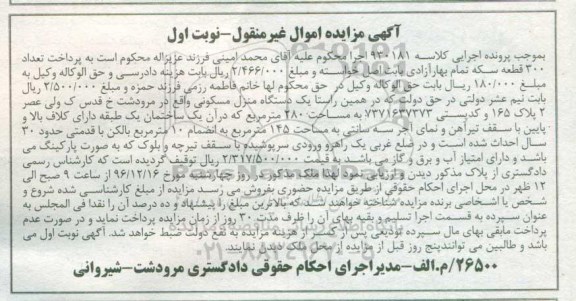 آگهی مزایده اموال غیرمنقول-نوبت اول
بموجب پرونده اجرایی کلاسه ۹۳۰۱۸۱ اجرا محکوم علیه آقای محمد امینی فرزند عزیزاله محکوم است به پرداخت تعداد
۳۰۰ قطعه سکه تمام بهار آزادی بابت اصل خواسته و مبلغ ۲/۴۶۶/۰۰۰ ریال بابت هزینه دادرسی و حق الوکاله وکیل به
مبلغ ۱۸۰/۰۰۰ ریال بابت حق الوکاله وکیل در حق محکوم لها خانم فاطمه رزمی فرزند حمزه و مبلغ ۲/۵۰۰/۰۰۰ ریال
بابت نیم عشر دولتی در حق دولت که در همین راستا یک دستگاه منزل مسکونی واقع در مرودشت خ قدس ک ولی عصر
۲ پلاک ۱۶۵ و کدپستی ۷۳۷۱۶۳۷۳۷۳ به مساحت ۲۸۰ مترمربع که در آن یک ساختمان یک طبقه دارای کلاف بالا و
پایین با سقف تیرآهن و نمای آجر سه سانتی به مساحت ۱۴۵ مترمربع به انضمام ۱۰ مترمربع بالکن با قدمتی حدود ۳۰
سال احداث شده است و در ضلع غربی یک راهرو ورودی سرپوشیده با سقف تیرچه و بلوک که به صورت پارکینگ می
باشد و دارای امتیاز آب و برق و گاز می باشد به قیمت ۲/۳۱۷/۵۰۰/۰۰۰ ریال توقیف گردیده است که کارشناس رسمی
دادگستری از پلاک مذکور دیدن و ارزیابی نموده لهذا ملک مذکور در روز چهارشنبه مورخ ۹۶/۱۲/۱۶ از ساعت ۹ صبح الی
۱۲ ظهر در محل اجرای احکام حقوقی از طریق مزایده حضوری بفروش می رسد مزایده از مبلغ کارشناسی شده شروع و
شخص یا اشخاصی برنده مزایده شناخته خواهند شد که بالاترین مبلغ را پیشنهاد و ده درصد آن را نقدا فی المجلس به
عنوان سپرده به قسمت اجرا تسلیم و بقیه بهای آن را ظرف مدت ۳۰ روز از زمان مزایده پرداخت نماید و در صورت عدم
پرداخت مابقی بهای مال سپرده تودیعی پس از کسر از هزینه مزایده به نفع دولت ضبط خواهد شد. آگهی نوبت اول می
باشد و طالبین می توانند پنج روز قبل از مزایده از محل ملک دیدن نمایند.
۲۶۵۰۰/م.الف-مدیر اجرای احکام حقوقی دادگستری مرودشت-شیروانی